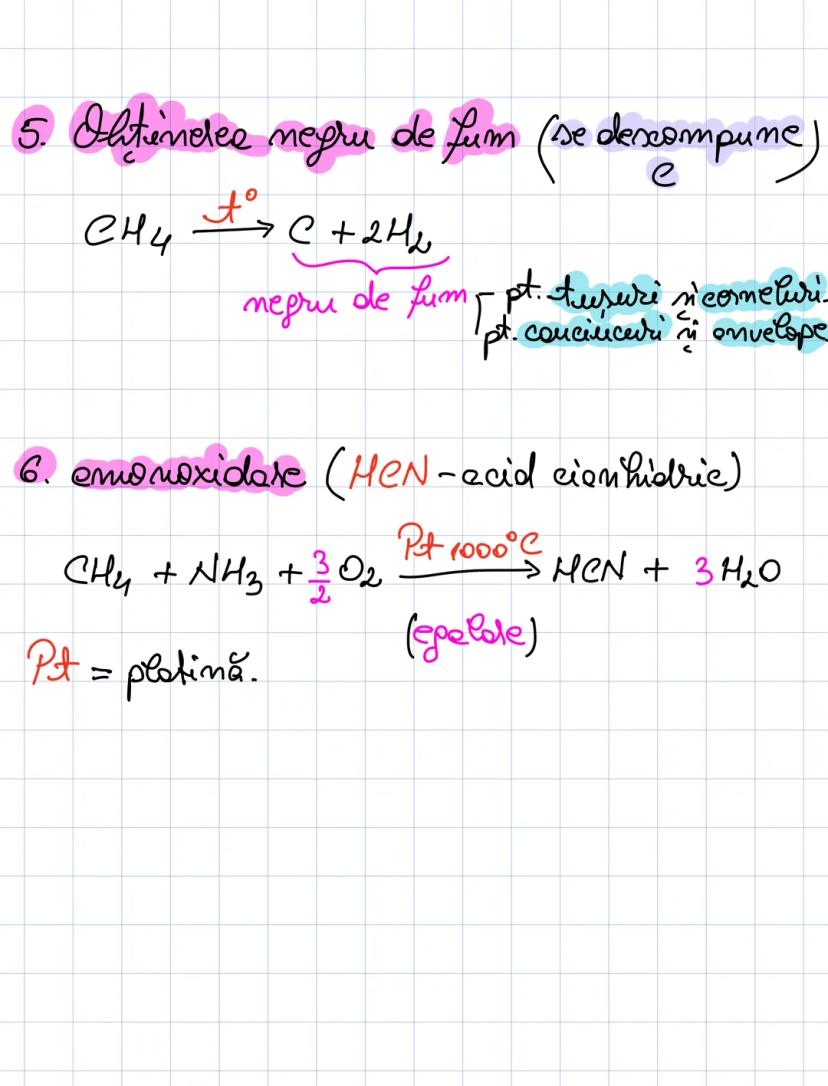 5. Obținerea negru de fum (se descompune
C)
CH₄ →(t°) C + 2H₂
negru de fum - pt. tușuri și cerneluri.
pt. cauciucuri și anvelope
6. amonoxidare (HCN - acid cianhidric)
CH₄ + NH₃ + 3/2 O₂ →(Pt 1000°C) HCN + 3H₂O
(egalare)
Pt = platină.